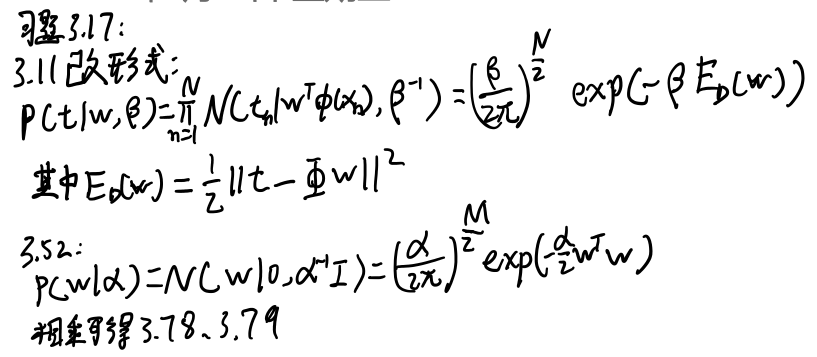 习题3.17:
3.11改形式:
P(t|w,β)=∏_{n=1}^{N} N(t_n|w^Tφ(x_n),β^{-1})=(β/2π)^{N/2} exp(-βE_D(w))
其中E_D(w)=1/2||t-Φw||^2
3.52:
P(w|α)=N(w|0,α^{-1}I)=(α/2π)^{M/2}exp(-α/2 w^Tw)
相乘可得3.78、3.79